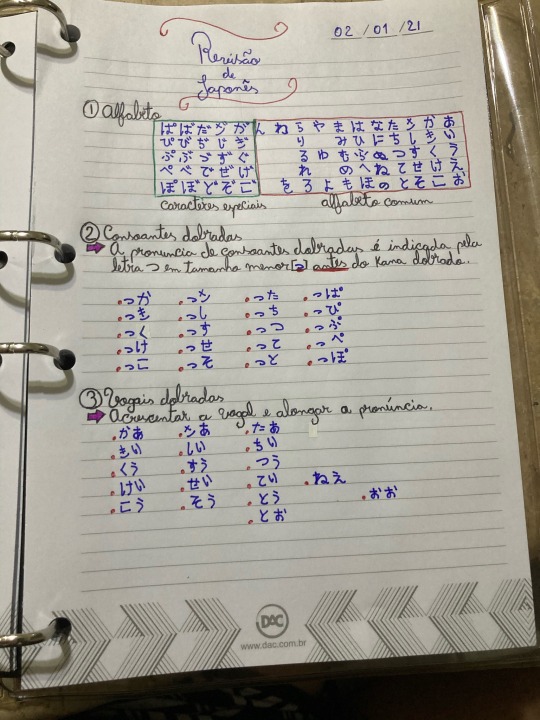 02/01/21
Revisão
de
Japonês
① Alfabeto
ぱ ば だ ざ が ん わ ら や ま は な た さ か あ
ぴ び ぢ じ ぎ り み ひ に ち し き い
ぷ ぶ づ ず ぐ る ゆ む ふ ぬ つ す く う
ぺ べ で ぜ げ れ め へ ね て せ け え
ぽ ぼ ど ぞ ご を ろ よ も ほ の と そ こ お
caracteres especiais alfabeto comum
② Consoantes dobradas
A pronuncia de consoantes dobradas é indicada pela
letra つ em tamanho menor [っ] antes do Kana dobrado.
.っか .っさ .った .っぱ
.っき .っし .っち .っぴ
.っく .っす .っつ .っぷ
.っけ .っせ .って .っぺ
.っこ .っそ .っと .っぽ
③ Vogais dobradas
Acrescentar a vogal e alongar a pronúncia.
.かあ .さあ .たあ
.きい .しい .ちい
.くう .すう .つう
.けい .せい .てい .ねえ
.こう .そう .とう .おお
.とお
DAC
www.dac.com.br